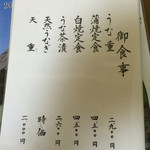 御食事
うな重 二、九〇〇円
蒲焼定食 四、五〇〇円
白焼定食 四、五〇〇円
うな茶漬 二、六〇〇円
天然うなぎ 時価
天重 二、〇〇〇円
20